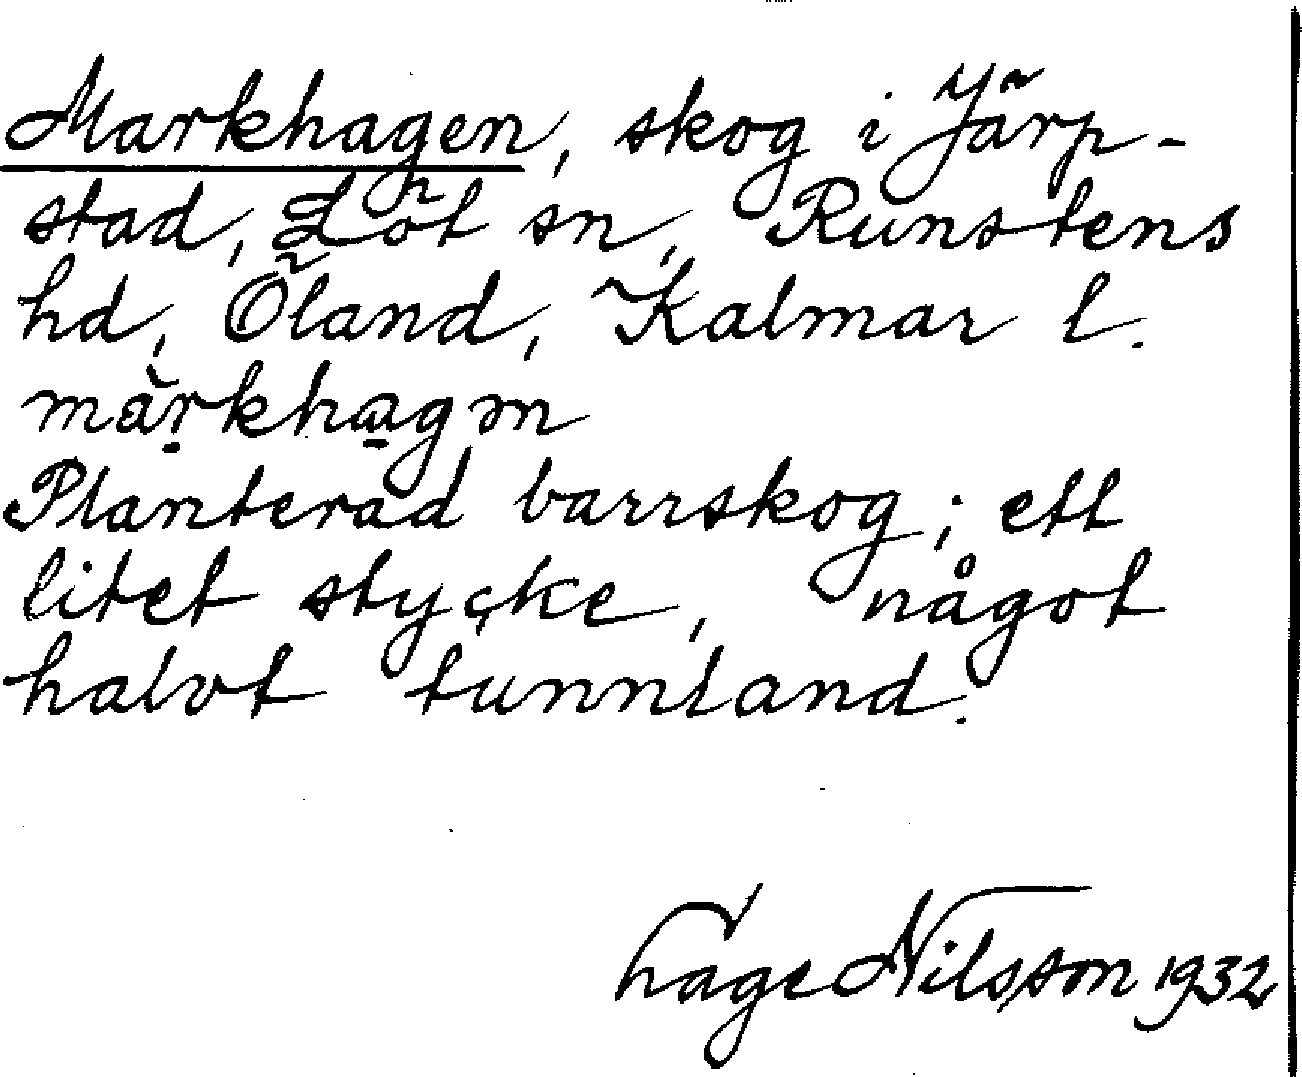 Markhagen, skog i Järp-
stad, Löt sn, Runstens
hd, Öland, Kalmar l.
màṛkha̱gm
Planterad barrskog; ett
litet stycke, något
halvt tunnland.
Hage Nilsson 1932